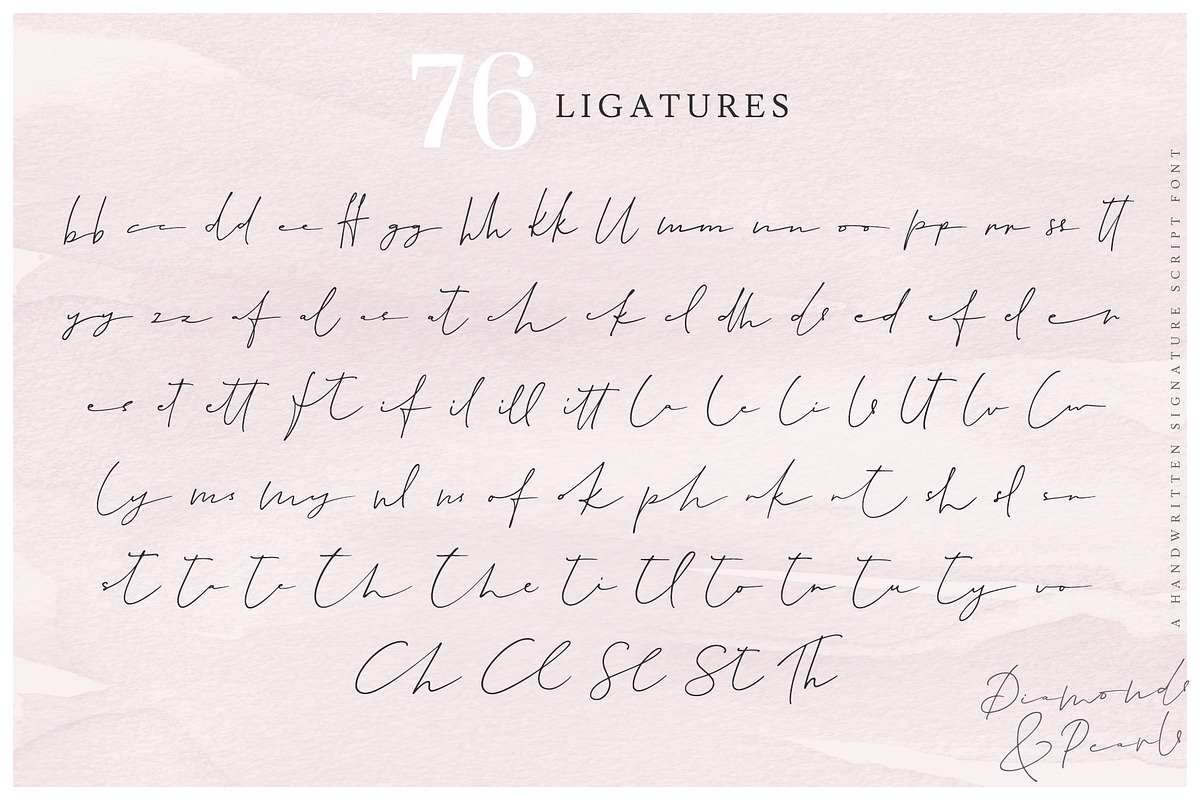 76 LIGATURES
bb cc dd ee ff gg hh kk ll mm nn oo pp rr ss tt
yy zz af al as at ch ck cl dh ds ed ef el er
es et ett ft if il ill itt la le li ls lt lv lw
ly ms my nl ns of ok ph rk rt sh sl sr
st ta te th the ti tl to tr tu ty vo
Ch Cl Sl St Th
Diamonds
&Pearls
A HANDWRITTEN SIGNATURE SCRIPT FONT